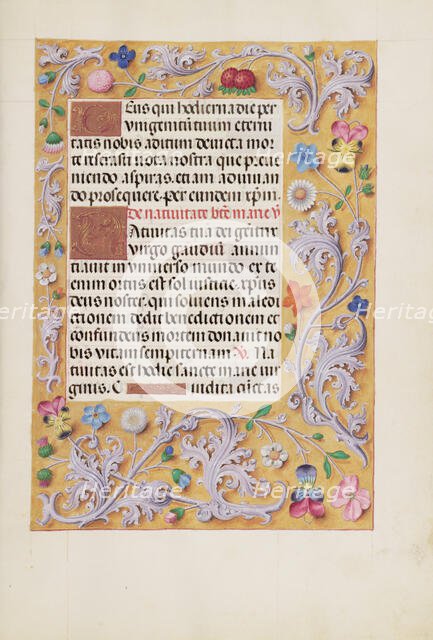 Deus qui hodierna die per
unigenitum tuum eterni
tatis nobis aditum devicta mor
te reserasti vota nostra que preve
niendo aspiras. etiam adiuvan
do prosequere. per eundem xp̃m.
De nativitate bt̃e marie ṽ
Nativitas tua dei genitrix
virgo gaudium annun
tiavit in universo mundo ex te
enim ortus est sol iusticie. xp̃us
deus noster. qui solvens maledi
ctionem dedit benedictionem et
confundens mortem donavit no
bis vitam sempiternam. ṽ. Na
tivitas est hodie sancte marie vir
ginis. C
Heritage Heritage
Heritage Heritage